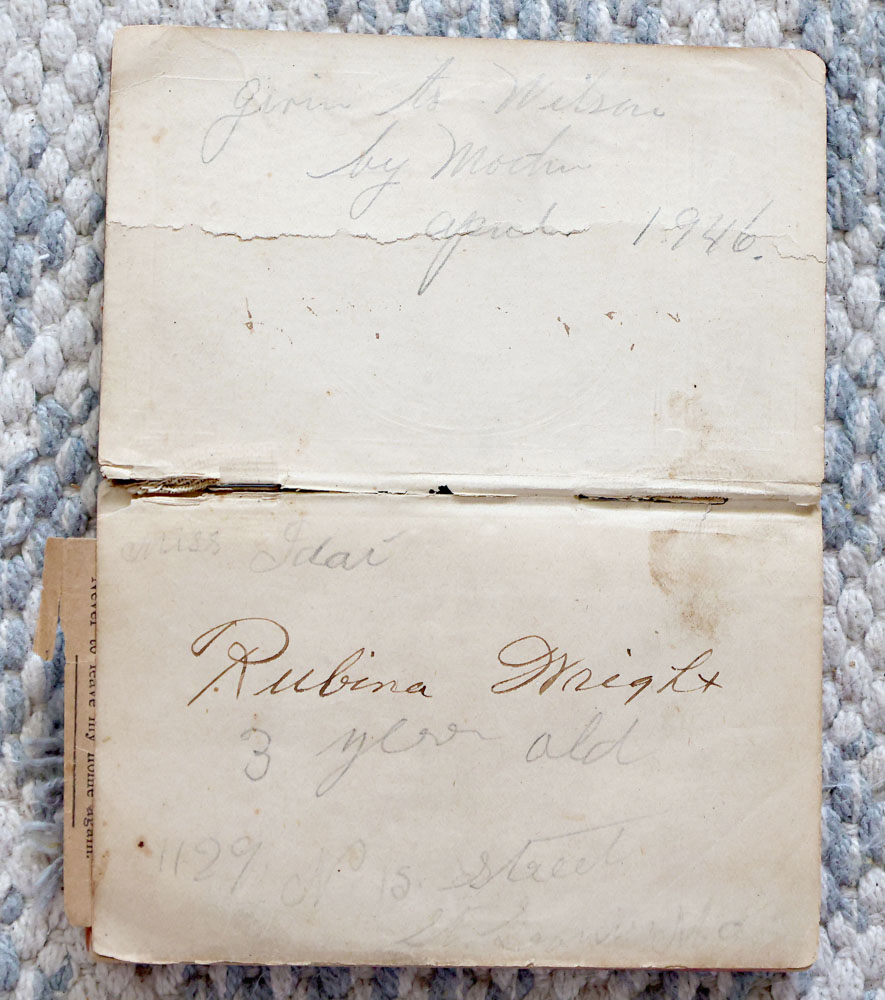 given to Wilson
by Mother
April 1946.
Miss Ida
Rubina Wright
3 year old
1129 N 15 Street
St. Louis Mo
Never to leave my home again.